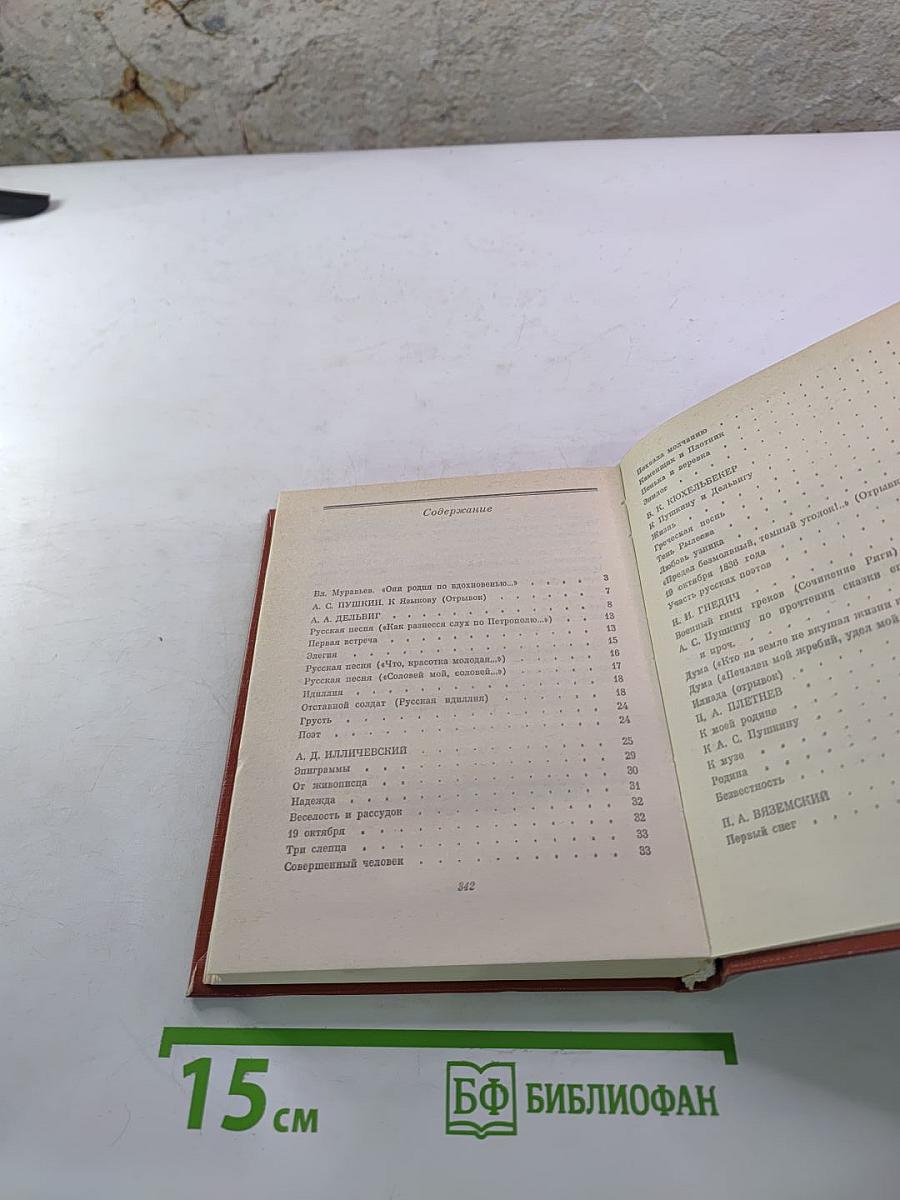 Содержание
Вл. Муравьев. «Они родня по вдохновенью...» . . . . . 3
А. С. ПУШКИН. К Языкову (Отрывок) . . . . . . 7
А. А. ДЕЛЬВИГ . . . . . . . . . 8
Русская песня («Как разнесся слух по Петрополю...») . . . 13
Первая встреча . . . . . . . . . 13
Элегия . . . . . . . . . . 15
Русская песня («Что, красотка молодая...») . . . . . 16
Русская песня («Соловей мой, соловей...») . . . . . 17
Идиллия . . . . . . . . . . 18
Отставной солдат (Русская идиллия) . . . . . . 18
Грусть . . . . . . . . . . 24
Поэт . . . . . . . . . . . 24
А. Д. ИЛЛИЧЕВСКИЙ . . . . . . . . 25
Эпиграммы . . . . . . . . . . 29
От живописца . . . . . . . . . 30
Надежда . . . . . . . . . . 31
Веселость и рассудок . . . . . . . . 32
19 октября . . . . . . . . . . 32
Три слепца . . . . . . . . . . 33
Совершенный человек . . . . . . . . 33
342
Похвала молчанию . . . . . . .
Каменщик и Плотник . . . . . . .
Пенька и веревка . . . . . . .
Эпилог . . . . . . . .
В. К. КЮХЕЛЬБЕКЕР . . . . . .
К Пушкину и Дельвигу . . . . . .
Жизнь . . . . . . . .
Греческая песнь . . . . . . .
Тень Рылеева . . . . . . .
Любовь узника . . . . . . .
«Предел безмолвный, темный уголок!..» (Отрывок
19 октября 1836 года . . . . . .
Участь русских поэтов . . . . . .
Н. И. ГНЕДИЧ . . . . . . .
Военный гимн греков (Сочинение Риги)
А. С. Пушкину по прочтении сказки ег
и проч. . . . . . . . .
Дума («Кто на земле не вкушал жизни
Дума («Печален мой жребий, удел мой
Илиада (отрывок) . . . . .
П. А. ПЛЕТНЕВ . . . . . .
К моей родине . . . . . .
К А. С. Пушкину . . . . .
К музе . . . . . .
Родина . . . . . .
Безвестность . . . . .
П. А. ВЯЗЕМСКИЙ . . . .
Первый снег . . . .
15 см
БФ БИБЛИОФАН